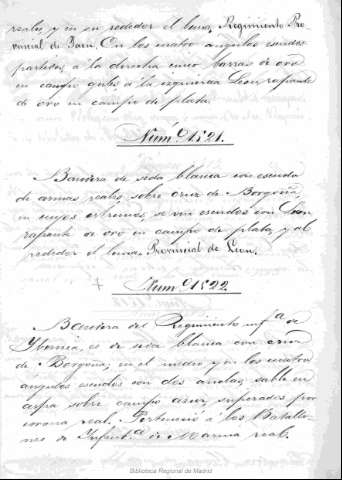 reales, y en su rededor el lema, Regimiento Pro-
vincial de Jaen. En los cuatro angulos escudos
partidos, a la derecha cinco barras de oro
en campo gules á la izquierda Leon rapante
de oro en campo de plata.
Núm.º 1521.
Bandera de seda blanca con escudo
de armas reales, sobre cruz de Borgoña,
en cuyos extremos, se ven escudos con Leon
rapante de oro en campo de plata, y al
rededor el lema, Provincial de Leon.
Núm.º 1522.
Bandera del Regimiento inf.ª de
Ybernia, es de seda blanca con cruz
de Borgoña, en el medio y en los cuatro
angulos escudos con dos anclas, sable en
aspa sobre campo azur, superados por
corona real. Perteneció á los Batallo-
nes de Infant.ª de Marina real.
Biblioteca Regional de Madrid